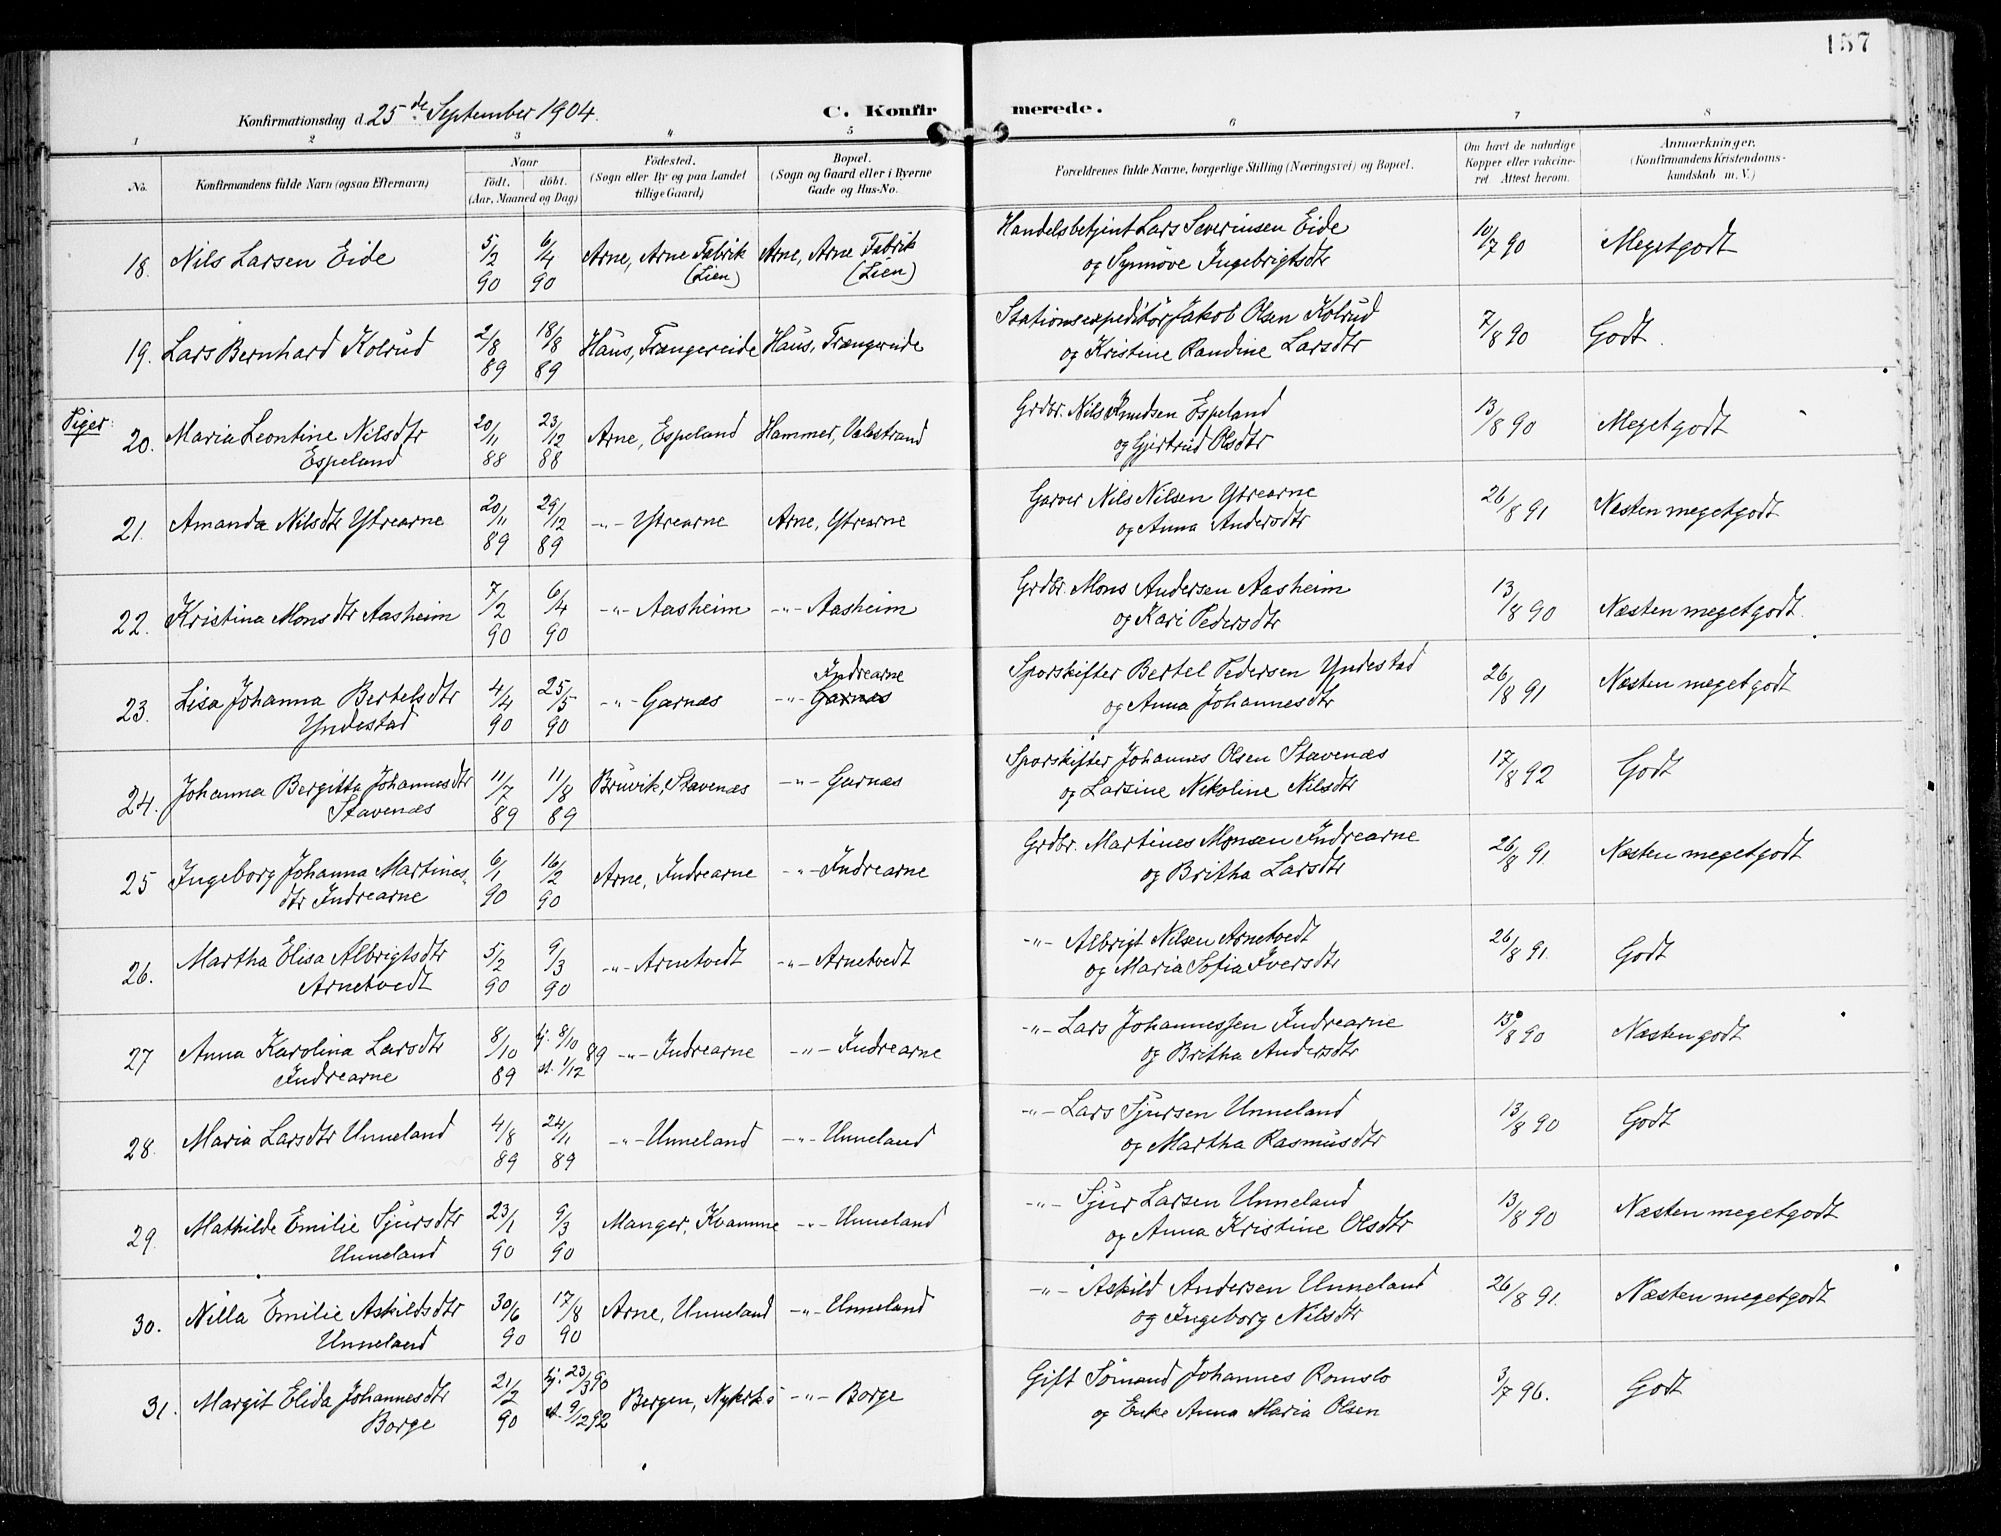 157
Konfirmationsdag d. 25de September 1904.
C. Konfirmerede.
1 2 3 4 5 6 7 8
No.
Konfirmandens fulde Navn (ogsaa Efternavn)
Naar
födt. döbt.
(Aar, Maaned og Dag)
Födested.
(Sogn eller By og paa Landet
tillige Gaard)
Bopæl.
(Sogn og Gaard eller i Byerne
Gade og Hus-No.
Forældrenes fulde Navne, borgerlige Stilling (Næringsvei) og Bopæl.
Om havt de naturlige
Kopper eller vakcine-
ret Attest herom.
Anmærkninger.
(Konfirmandens Kristendoms-
kundskab m. V.)
18. Nils Larsen Eide 5/2 90 6/4 90 Arne, Arne Fabrik (Lien) Arne, Arne Fabrik (Lien) Handelsbetjent Lars Severinsen Eide 10/7 90 Megetgodt
og Synnøve Ingebrigtsdtr
19. Lars Bernhard Kolrud 2/8 89 18/8 89 Haus, Trængereide Haus, Trængereide Stationsexpeditør Jakob Olsen Kolrud 7/8 90 Godt.
og Kristine Randine Larsdtr
Piger:
20. Maria Leontine Nilsdtr 20/11 88 23/12 88 Arne, Espeland Hammer, Valestrand Grdbr. Nils Knudsen Espeland 13/8 90 Megetgodt
Espeland og Gjertrud Olsdtr
21. Amanda Nilsdtr Ytrearne 20/11 89 29/12 89 -"- Ytrearne Arne, Ytrearne Garver Nils Nilsen Ytrearne 26/8 91 Næsten megetgodt
og Anna Andersdtr
22. Kristina Monsdtr Aasheim 7/2 90 6/4 90 -"- Aasheim -"- Aasheim Grdbr. Mons Andersen Aasheim 13/8 90 Næsten megetgodt.
og Kari Pedersdtr
23. Lisa Johanna Bertelsdtr 4/4 90 25/5 90 -"- Garnæs -"- Garnæs Indrearne Sporskifter Bertel Pedersen Yndestad 26/8 91 Næsten megetgodt
Yndestad og Anna Johannesdtr
24. Johanna Bergitta Johannesdtr 11/7 89 11/8 89 Bruvik, Stavenæs -"- Garnæs Sporskifter Johannes Olsen Stavenæs 17/8 92 Godt
Stavenæs og Larsine Nikoline Nilsdtr
25 Ingeborg Johanna Martines- 6/1 90 16/2 90 Arne, Indrearne -"- Indrearne Grdbr. Martines Monsen Indrearne 26/8 91 Næsten megetgodt
dtr Indrearne og Britha Larsdtr
26. Martha Elisa Albrigtsdtr 5/2 90 9/3 90 -"- Arnetvedt -"- Arnetvedt -"- Albrigt Nilsen Arnetvedt 26/8 91. Godt
Arnetvedt og Maria Sofia Iversdtr
27 Anna Karolina Larsdtr 8/10 89 hj. 8/10 st. 1/12 89 -"- Indrearne -"- Indrearne -"- Lars Johannessen Indrearne 13/8 90 Næsten godt
Indrearne og Britha Andersdtr
28. Maria Larsdtr Unneland 4/8 89 24/11 89 -"- Unneland -"- Unneland -"- Lars Sjursen Unneland 13/8 90 Godt
og Martha Rasmusdtr
29. Mathilde Emilie Sjursdtr 23/1 90 9/3 90 Manger, Kvamme -"- Unneland -"- Sjur Larsen Unneland 13/8 90 Næsten megetgodt
Unneland og Anna Kristine Olsdtr
30. Nilla Emilie Askildsdtr 30/6 90 17/8 90 Arne, Unneland -"- Unneland -"- Askild Andersen Unneland 26/8 91. Næsten megetgodt
Unneland og Ingeborg Nilsdtr
31. Margit Elida Johannesdtr 21/2 90 hj. 23/3 90 st. 9/12 92 Bergen, Nykrks -"- Borge Gift Sømand Johannes Romslo 3/7 96. Godt
Borge og Enke Anna Maria Olsen